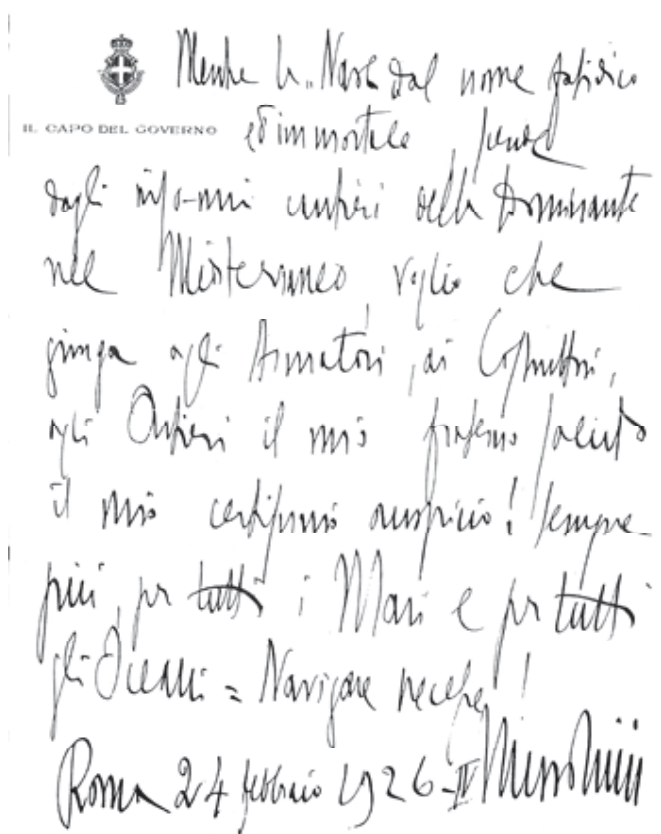 Mentre la Nave dal nome fatidico
IL CAPO DEL GOVERNO
ed immortale, scende
dagli cantieri della Dominante
nel Mediterraneo, voglio che
giunga agli Armatori, ai Costruttori,
agli il mio fraterno saluto
il mio certissimo auspicio! Sempre
più, per tutti i Mari e per tutti
gli Oceani = Navigare necesse!
Roma 24 febbraio 1926-IV Mussolini